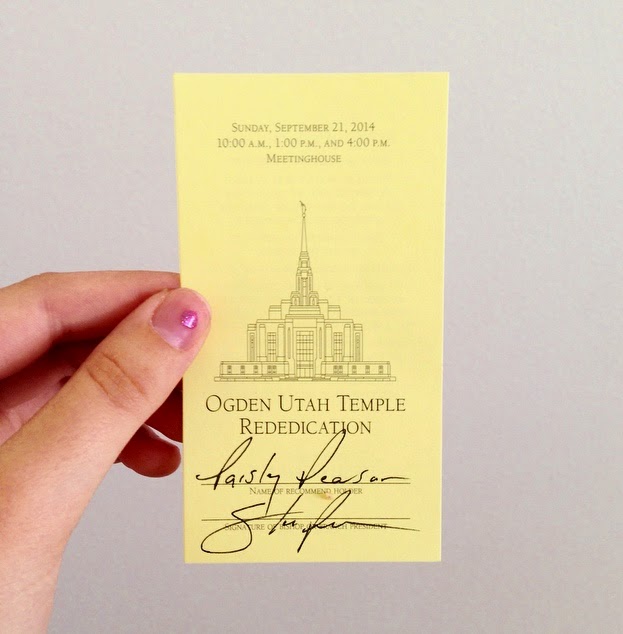 Sunday, September 21, 2014
10:00 a.m., 1:00 p.m., and 4:00 p.m.
Meetinghouse
Ogden Utah Temple
Rededication
Paisly Pearson
Name of recommend holder
Signature of bishop or branch president